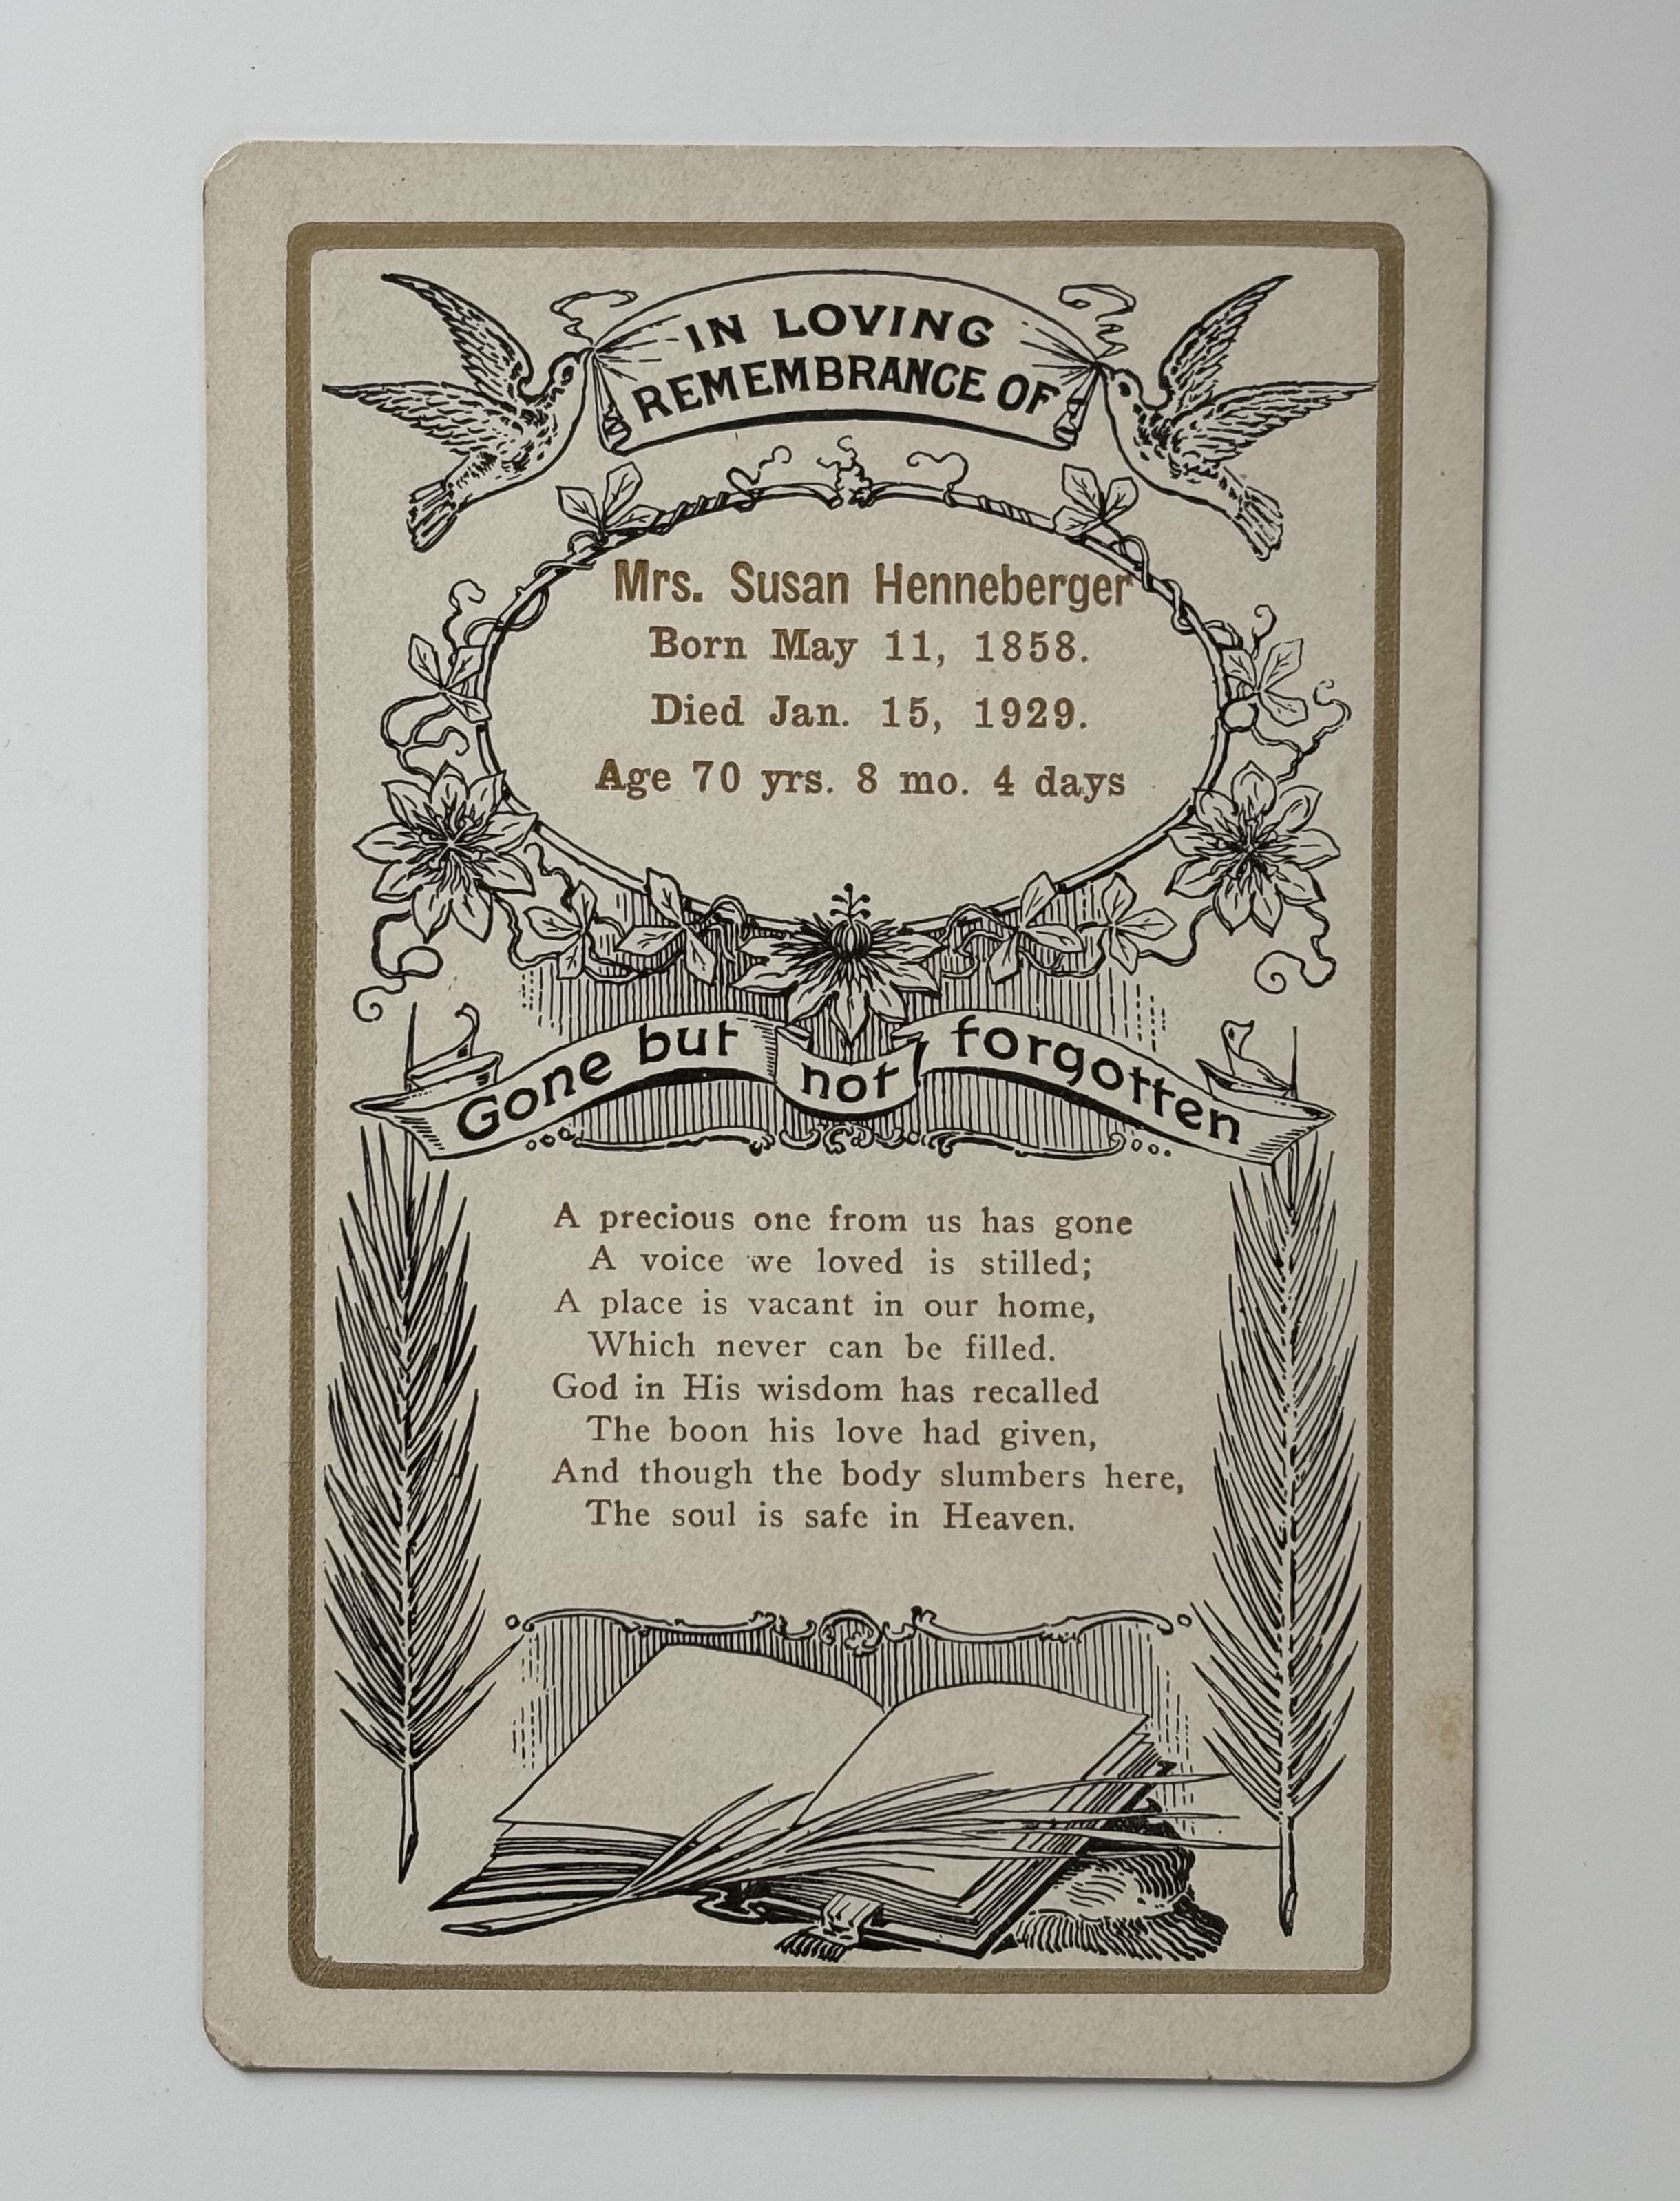 IN LOVING
REMEMBRANCE OF
Mrs. Susan Henneberger
Born May 11, 1858.
Died Jan. 15, 1929.
Age 70 yrs. 8 mo. 4 days
Gone but not forgotten
A precious one from us has gone
A voice we loved is stilled;
A place is vacant in our home,
Which never can be filled.
God in His wisdom has recalled
The boon his love had given,
And though the body slumbers here,
The soul is safe in Heaven.